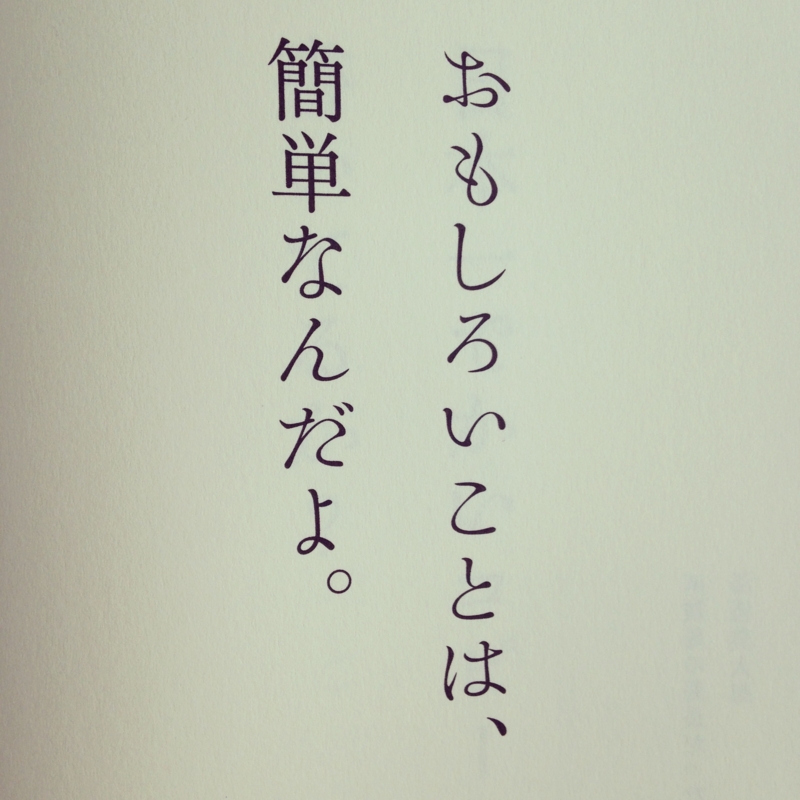 おもしろいことは、
簡単なんだよ。